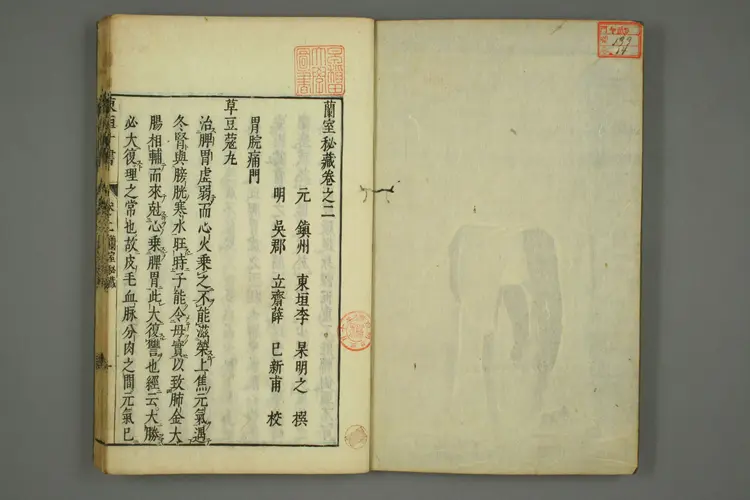 蘭室秘藏卷之二
元 鎮州 東垣李 杲明之 撰
明 吳郡 立齋薛 已新甫 校
胃脘痛門
草豆蔻丸
治脾胃虛弱而心火乘之不能滋榮上焦元氣遇
冬腎與膀胱寒水旺時子能令母實以致肺金大
腸相輔而來尅心乘脾胃此大復讐也經云大勝
必大復理之常也故皮毛血脉分肉之間元氣已
東垣十書